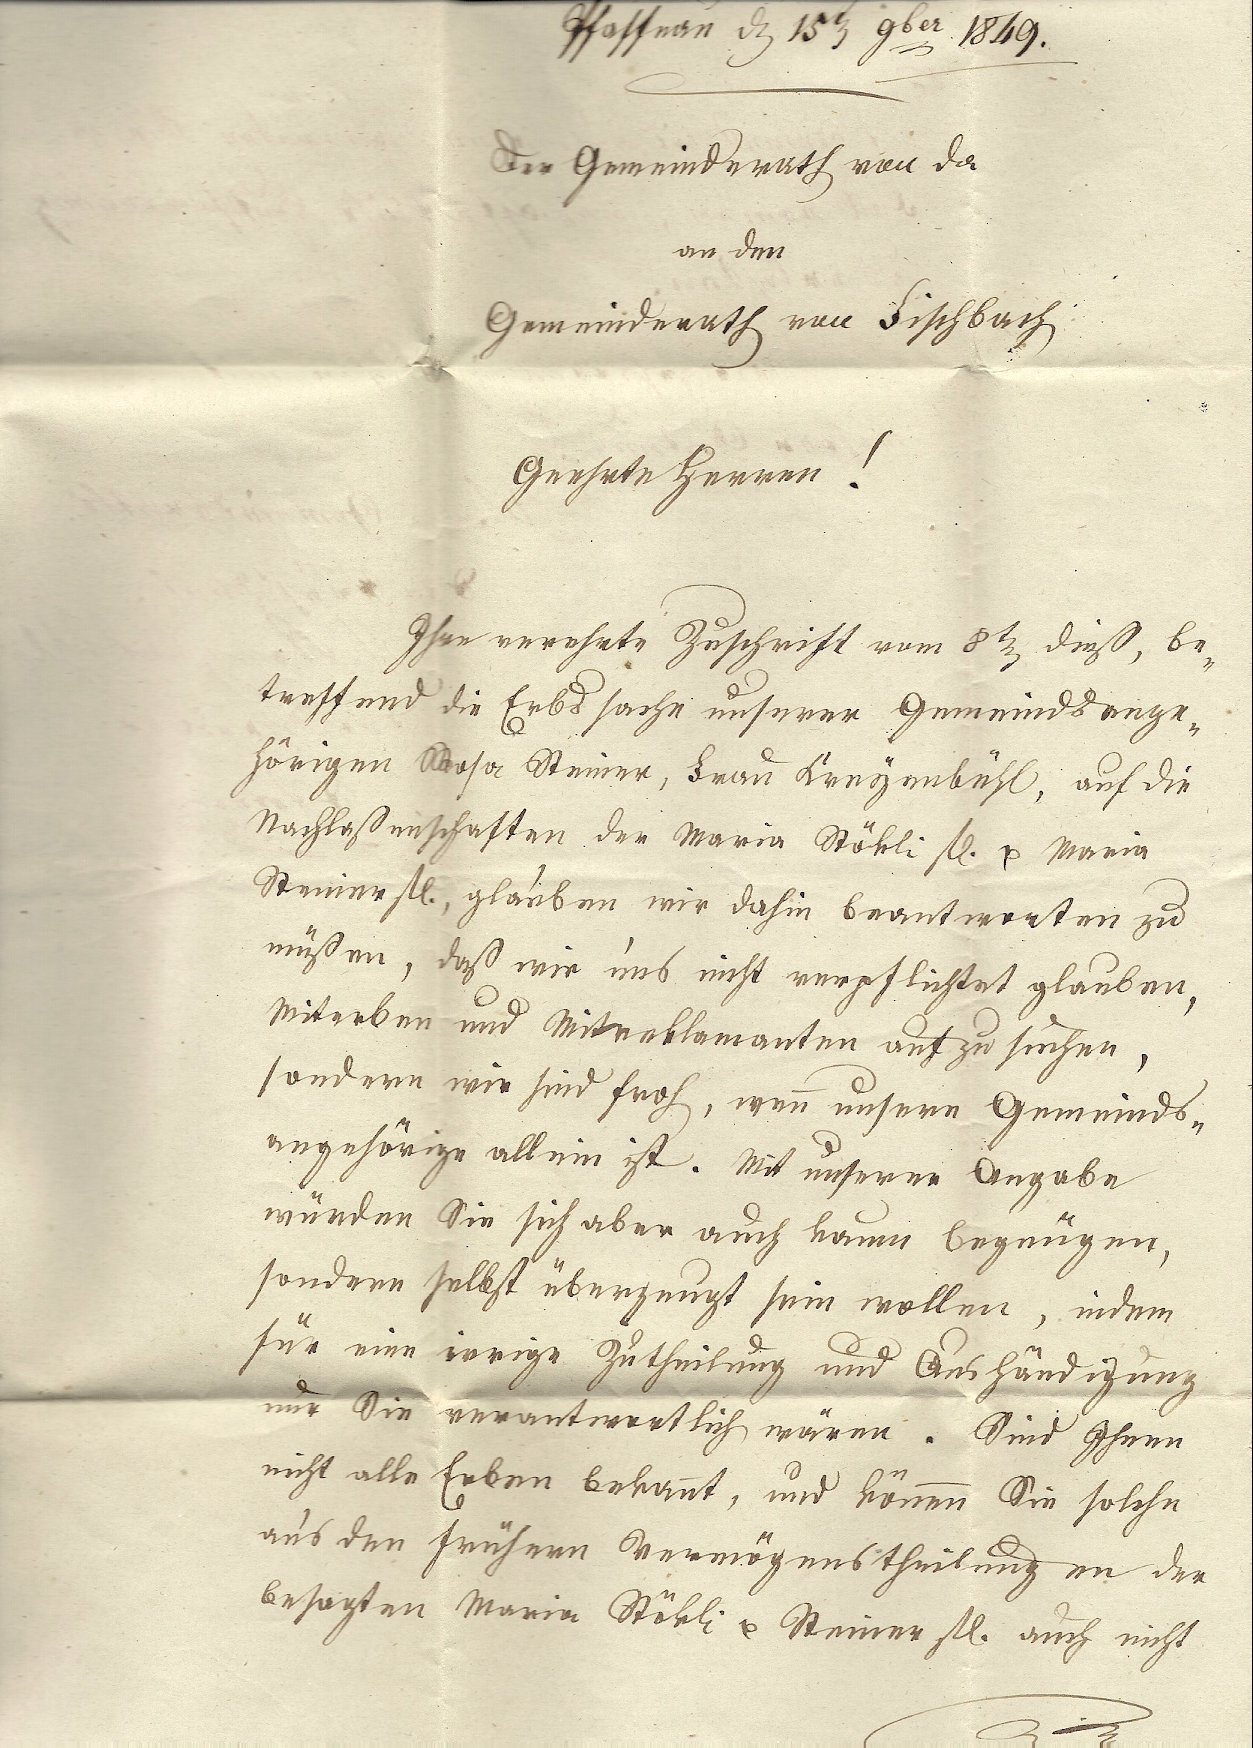 Pfaffnau d 15t 9ber 1849.
Der Gemeinderath von da
an den
Gemeinderath von Fischbach
Geehrte Herren!
Ihre verehrte Zuschrift vom 8t dieß, be-
treffend die Erbssache unserer Gemeindsange-
hörigen Rosa Steiner, Frau Kreyenbühl, auf die
Nachlaßenschaften der Maria Stökli sl. & Maria
Steiner sl., glauben wir dahin beantworten zu
müßen, daß wir uns nicht verpflichtet glauben,
Miterben und Mitreklamanten aufzusuchen,
sondern wir sind froh, wen̄ unsere Gemeinds-
angehörige allein ist. Mit unserer Angabe
würden Sie sich aber auch kaum begnügen,
sondern selbst überzeugt sein wollen, indem
für eine irrige Zutheilung und Aushändigung
nur Sie verantwortlich wären. Sind Ihnen
nicht alle Erben bekan̄t, und könen̄ Sie solche
aus den frühern Vermögenstheilungen der
besagten Maria Stökli & Steiner sl. auch nicht